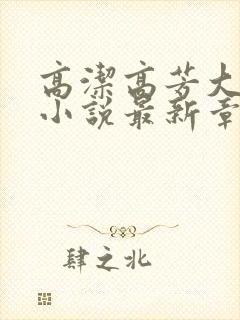 高潔高芳大
小說最新章
肆之北